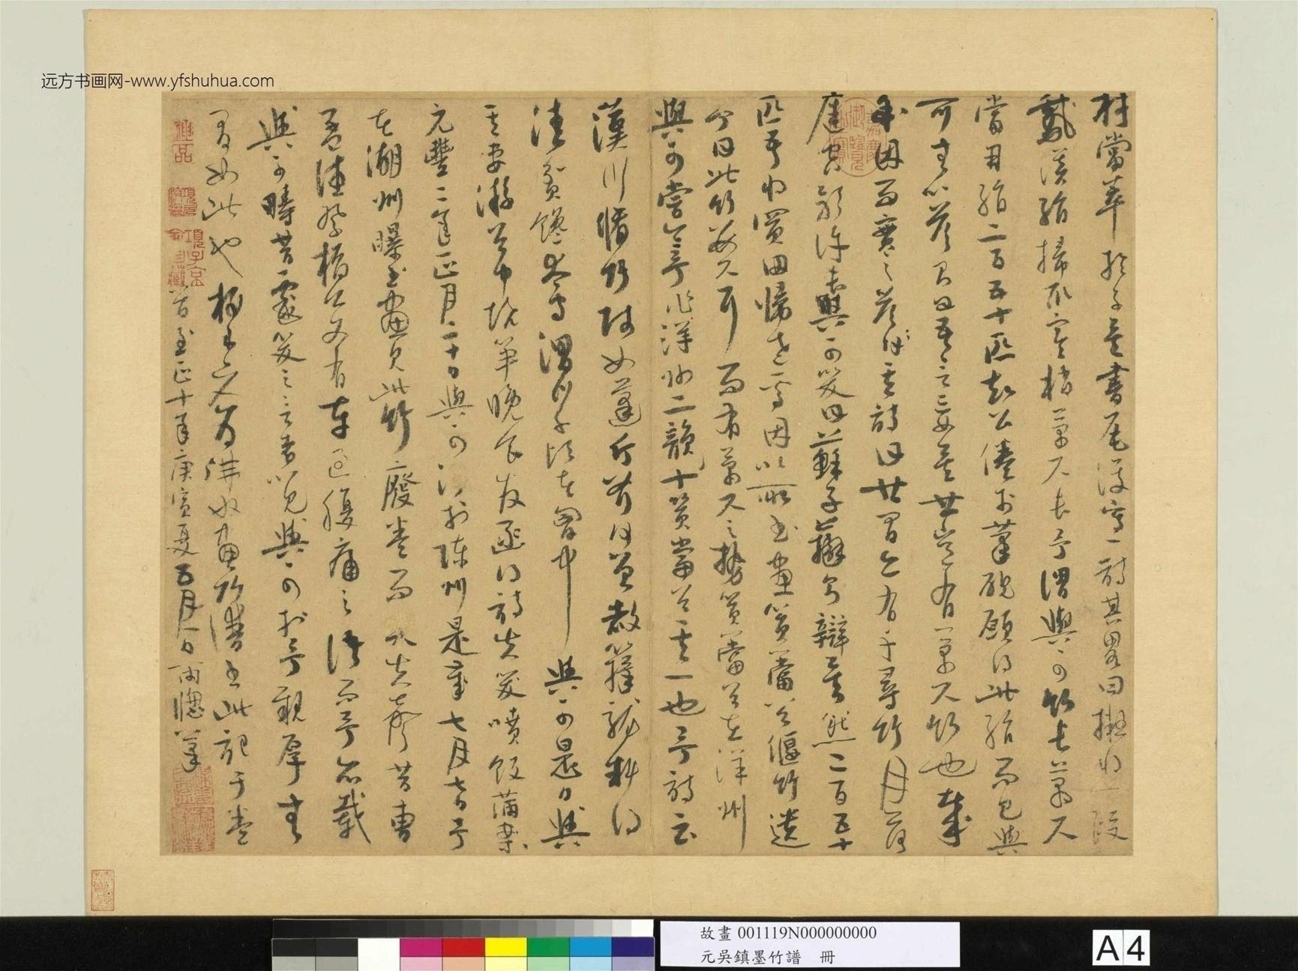 远方书画网-www.yfshuhua.com
材當萃於子矣書尾復寫一詩其略曰擬將一段
鵝溪絹掃取寒梢萬尺長予謂與可竹長萬尺
當用絹二百五十匹知公倦於筆硯願得此絹而已與
可無以答則曰吾言妄矣世豈有萬尺竹也哉
余因而實之答其詩曰世間亦有千尋竹月落
庭空影許長與可笑曰蘇子辯則辯矣然二百五十
匹吾將買田歸老焉因以所書畫篔簹谷偃竹遺
余曰此竹數尺耳而有萬尺之勢篔簹谷在洋州
與可嘗令予作洋州三韻十篔簹谷其一也予詩云
漢川脩竹賤如蓬斤斧何曾赦籜龍料得
清貧饞太守渭川千畝在胸中與可是日與
其妻游谷中燒筍晚食發函得詩失笑噴飯滿案
元豐二年正月二十日與可沒於陳州是歲七月七日予
在湖州曝書畫見此竹廢卷而哭失聲昔曹
孟德祭橋公文有車過腹痛之語而予亦載
與可疇昔戲笑之言者以見與可於予親厚無
間如此也梅道人為佛奴畫竹譜書此記于卷
首至正十年庚寅夏五月一日雨窗筆
故畫 001119N000000000
元吳鎮墨竹譜 冊
A4